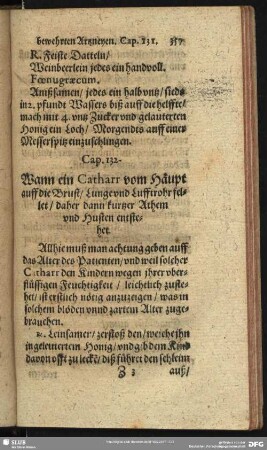 bewehrten Artzneyen. Cap. 131. 357
R. Feiste Datteln/
Weinbeerlein jedes ein handvoll.
Fœnugræcum.
Anißsamen/ jedes ein halb vntz/ siede
in 2. pfundt Wassers biß auff die helffte/
mach mit 4. vntz Zucker vnd geleuterten
Honig ein Loch/ Morgendts auff einer
Messerspitz einzuschlingen.
Cap. 132.
Wann ein Catharr vom Häupt
auff die Brust/ Lunge vnd Lufftrohr fel-
let/ daher dann kurtzer Athem
vnd Husten entste-
het.
Allhie muß man achtung geben auff
das Alter des Patienten/ vnd weil solcher
Catharr den Kindern wegen jhrer vber-
flüssigen Feuchtigkeit / leichtlich zuste-
het/ ist erstlich nötig anzuzeigen / was in
solchem blöden vnnd zartem Alter zuge-
brauchen.
R. Leinsamer/ zerstoß den/ weiche jhn
in geleutertem Honig/ vnd gib dem Kind
davon offt zu leckē/ diß führet den schleim
Z 3 auß/
SLUB
DFG